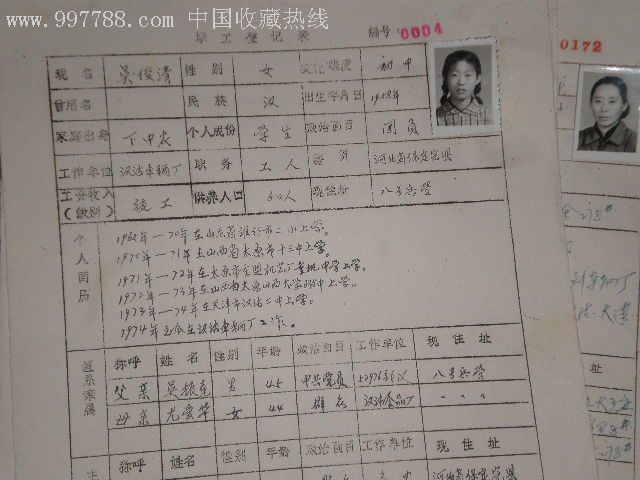 www.997788.com 中国收藏热线
职工登记表 编号 0004
现名 吴俊清 性别 女 文化程度 初中
曾用名 民族 汉 出生年月日 1958年
家庭出身 下中农 个人成份 学生 政治面目 团员
工作单位 汉沽车辆厂 职务 工人 籍贯 河北省保定完县
工资收入(级别) 徒工 供养人口 人 现住址 八号兵营
个人简历
1965年—70年在山东省潍坊市二小上学。
1970年—71年在山西省太原市十三中上学。
1971年—72年在太原市 机 厂 中学上学。
1972年—73年在山西省太原山西大学附中上学。
1973年—74年在天津市汉沽二中上学。
1974年至今在汉沽车辆厂工作。
直系亲属 称呼 姓名 性别 年龄 政治面目 工作单位 现住址
父亲 吴振 男 45 中共党员 部队 八号兵营
母亲 尤 女 44 群众 汉沽食品厂 〃 〃 〃
称呼 姓名 性别 年龄 政治面目 工作单位 现住址
河北省保定完县
0172